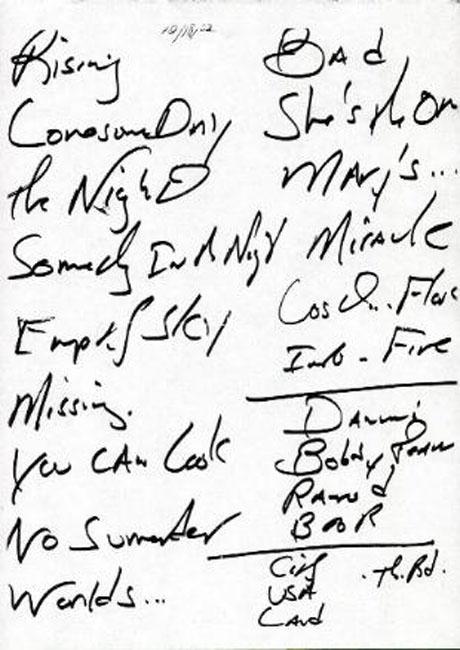 10/18/02
Rising
Lonesome Day
the Night
Somedy In th Nigt
Empty Sky
Missing.
You CAn Look
No Surrender
Worlds...
BAd
She's the On
MAry's...
Miracle
Into - Fire
Dancing
Bobby Jean
Ramrod
BOOR
City
USA
Land